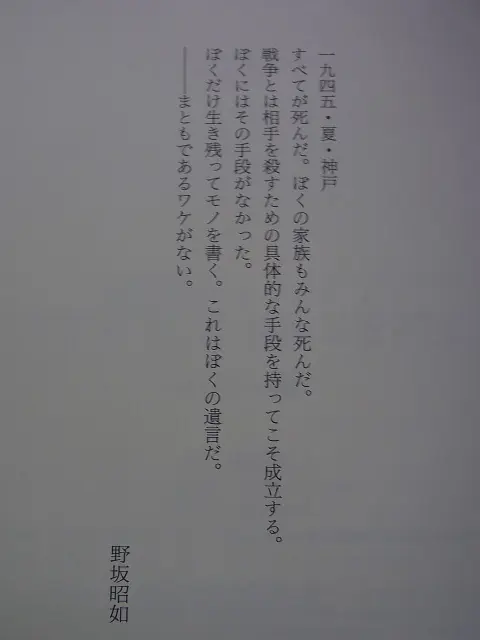 一九四五・夏・神戸
すべてが死んだ。ぼくの家族もみんな死んだ。
戦争とは相手を殺すための具体的な手段を持ってこそ成立する。
ぼくにはその手段がなかった。
ぼくだけ生き残ってモノを書く。これはぼくの遺言だ。
――まともであるワケがない。
野坂昭如